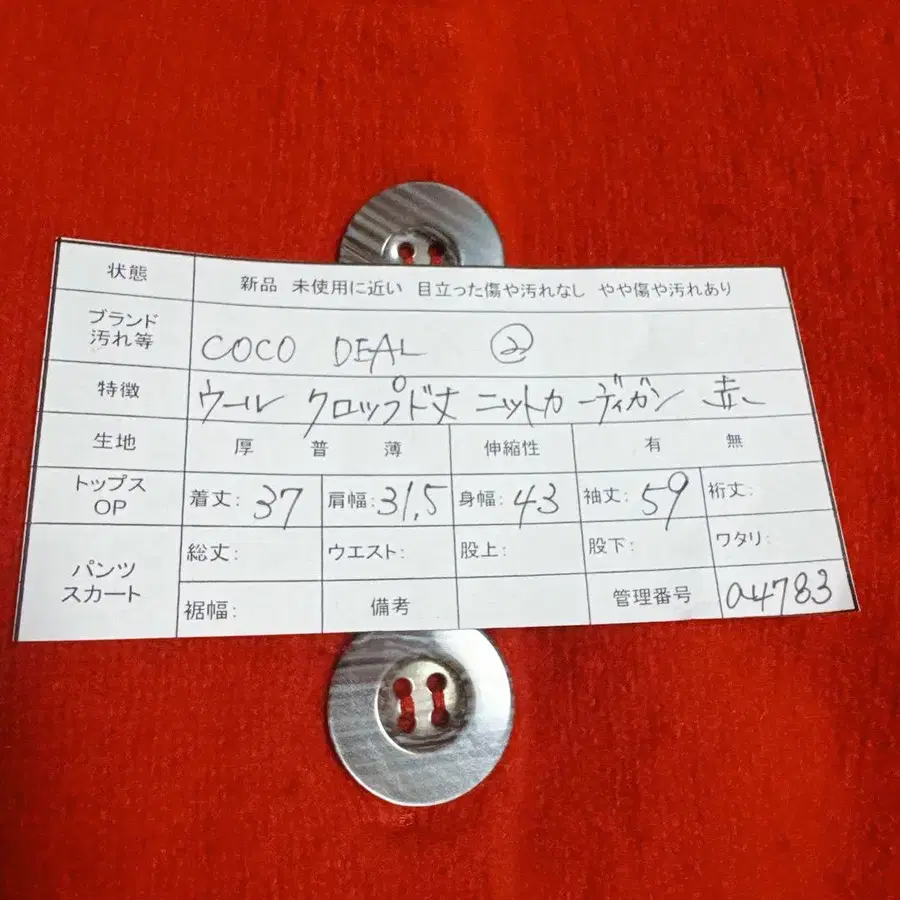 状態 新品 未使用に近い 目立った傷や汚れなし やや傷や汚れあり
ブランド
汚れ等 COCO DEAL ②
特徴 ウール クロップド丈 ニットカーディガン 赤
生地 厚 普 薄 伸縮性 有 無
トップス
OP 着丈: 37 肩幅: 31.5 身幅: 43 袖丈: 59 裄丈:
パンツ
スカート 総丈: ウエスト: 股上: 股下: ワタリ:
裾幅: 備考 管理番号 a4783